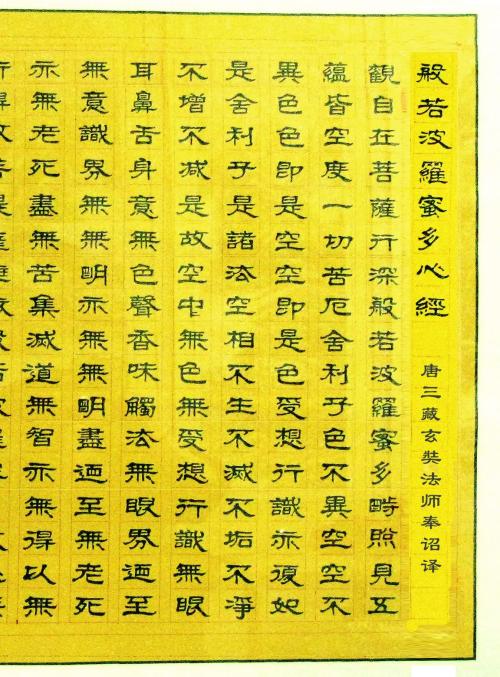 般若波羅蜜多心經 唐三藏玄奘法师奉诏译
觀自在菩薩行深般若波羅蜜多時照見五
蘊皆空度一切苦厄舍利子色不異空空不
異色色即是空空即是色受想行識亦復如
是舍利子是諸法空相不生不滅不垢不淨
不增不減是故空中無色無受想行識無眼
耳鼻舌身意無色聲香味觸法無眼界迺至
無意識界無無明亦無無明盡迺至無老死
亦無老死盡無苦集滅道無智亦無得以無